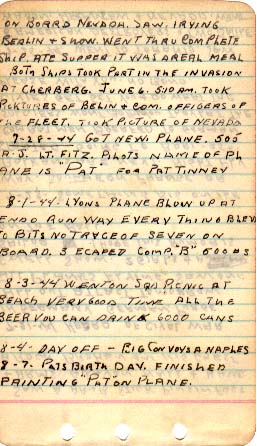 ON BOARD NEVADA. SAW. IRVING
BERLIN & SHOW. WENT THRU COMPLETE
SHIP. ATE SUPPER IT WAS A REAL MEAL
BOTH SHIPS TOOK PART IN THE INVASION
AT CHERBERG. JUNE 6. 510 AM. TOOK
PICKTURES OF BELIN & COM. OFFICERS OF
THE FLEET, TOOK PICTURE OF NEVADA
7-28-44 GOT NEW. PLANE. 505
LT. FITZ. PILOTS NAME OF PL
ANE IS "PAT" FOR PAT TINNEY
8-1-44. LYONS PLANE BLOW UP AT
END O RUN WAY EVERY THING BLEW
TO BITS NO TRACE OF SEVEN ON
BOARD. 3 ESCAPED COMP. "B" 500#S
8-3-44 WENT ON SQD PICNIC AT
BEACH VERY GOOD TIME ALL THE
BEER YOU CAN DRINK 6000 CANS
8-4- DAY OFF - BIG CONVOYS A NAPLES
8-7. PATS BIRTH DAY. FINISHED
PAINTING "PAT ON PLANE.